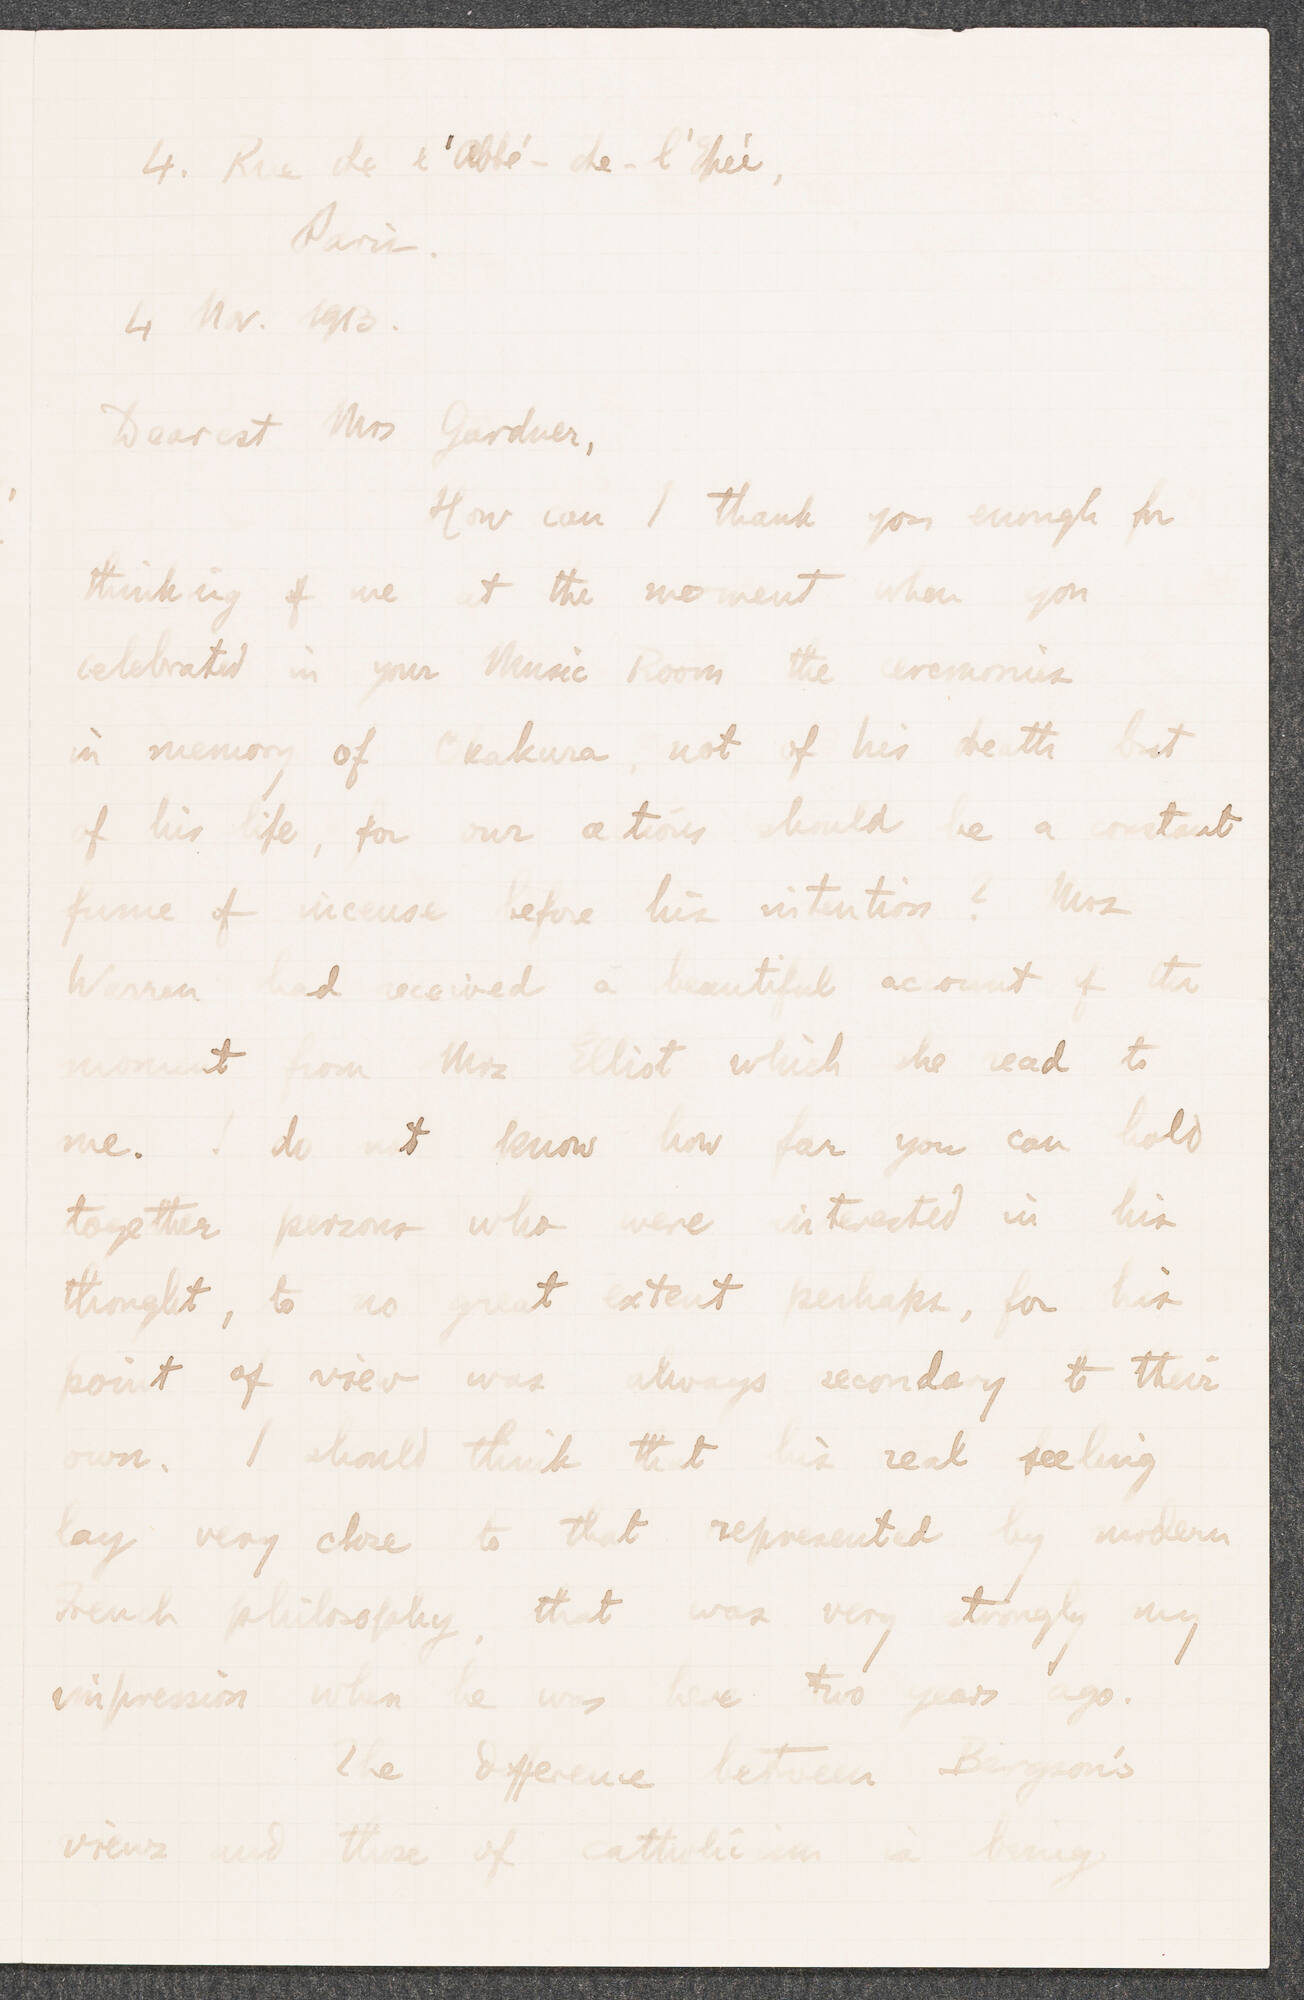 4. Rue de l'Abbé-de-l'Epée,
Paris.
4 Nov. 1913.
Dearest Mrs Gardner,
How can I thank you enough for
thinking of me at the moment when you
celebrated in your Music Room the ceremonies
in memory of Okakura, not of his death but
of his life, for our actions should be a constant
fume of incense before his intention? Mrs
Warren had received a beautiful account of the
moment from Mrs Elliot which she read to
me. I do not know how far you can hold
together persons who were interested in his
thought, to no great extent perhaps, for his
point of view was always secondary to their
own. I should think that his real feeling
lay very close to that represented by modern
French philosophy, that was very strongly my
impression when he was here two years ago.
The difference between Bergson's
views and those of catholicism is being